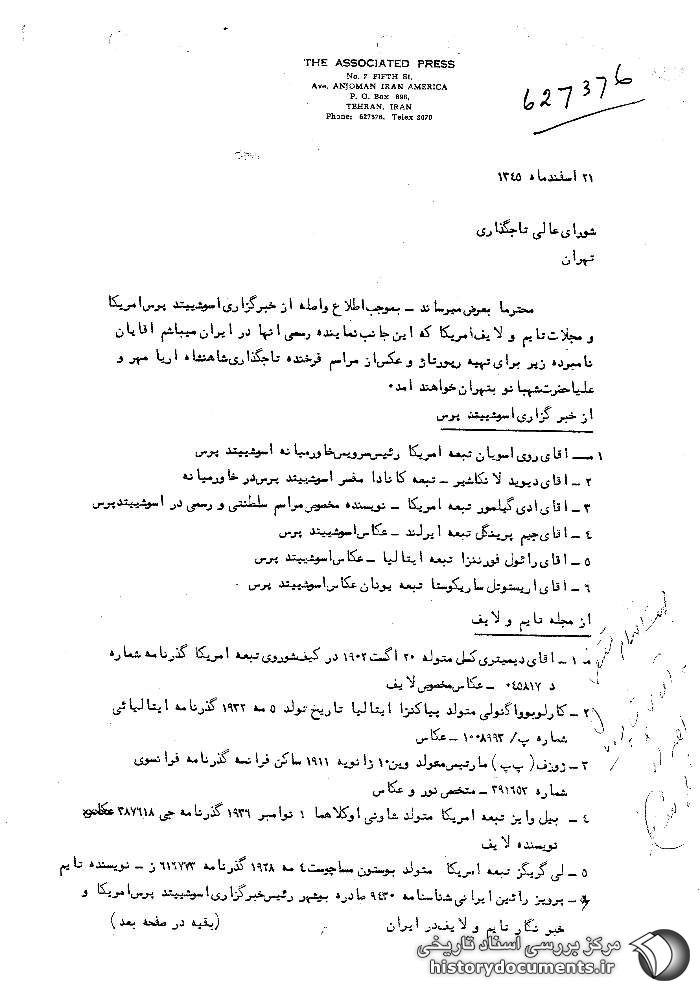 THE ASSOCIATED PRESS
No. 7 FIFTH St.
Ave. ANJOMAN IRAN AMERICA
P. O. Box 898,
TEHRAN, IRAN
Phone: 627376. Telex 2070
627376
۲۱ اسفندماه ۱۳٤٥
شورای عالی تاجگذاری
تهران
محترما بعرض میرساند ـ بموجب اطلاع واصله از خبرگزاری اسوشییتد پرس امریکا
و مجلات تایم و لایف امریکا که این جانب نماینده رسمی انها در ایران میباشم اقایان
نامبرده زیر برای تهیه رپورتاژ و عکس از مراسم فرخنده تاجگذاری شاهنشاه اریا مهر و
علیاحضرت شهبانو بتهران خواهند امد۰
از خبر گزاری اسوشییتد پرس
۱ ـ اقای روی اسویان تبعه امریکا رئیس سرویس خاورمیانه اسوشییتد پرس
۲ ـ اقای دیوید لانکاشیر ـ تبعه کانادا مفسر اسوشییتد پرس در خاورمیانه
۳ ـ اقای ادی گیلمور تبعه امریکا ـ نویسنده مخصوص مراسم سلطنتی و رسمی در اسوشییتدپرس
٤ ـ اقای جیم پرینگل تبعه ایرلند ـ عکاس اسوشییتد پرس
٥ ـ اقای رائول فورنزا تبعه ایتالیا ـ عکاس اسوشییتد پرس
٦ ـ اقای اریستوتل ساریکوستا تبعه یونان عکاس اسوشییتد پرس .
از مجله تایم و لایف
۱ ـ اقای دیمیتری کسل متولد ۲۰ اگست ۱۹۰۲ در کیف شوروی تبعه امریکا گذرنامه شماره
د ۰٤٥۸۱۷ ـ عکاس مخصوص لایف
۲ ـ کارلوبوواگنولی متولد پیاکنزا ایتالیا تاریخ تولد ٥ مه ۱۹۳۲ گذرنامه ایتالیائی
شماره پ/ ۱۰۰۸۹۹۳ ـ عکاس
۳ ـ ژوزف ( پپ ) مارتیس متولد وین ۱۰ ژانویه ۱۹۱۱ ساکن فرانسه گذرنامه فرانسوی
شماره ۳۹۱٦٥۲ ـ متخصص نور و عکاس
٤ ـ بیل وایز تبعه امریکا متولد شاونی اوکلاهما ۱ نوامبر ۱۹۳۹ گذرنامه جی ۳۸۷٦۱۸
نویسنده لایف
٥ ـ لی گریگز تبعه امریکا متولد بوستون مساچوست ٤ مه ۱۹۲۸ گذرنامه ٦۱٦۷۷۳ ز ـ نویسنده تایم
ـ پرویز رائین ایرانی شناسنامه ۹٤۳۰ صادره بوشهر رئیس خبرگزاری اسوشییتد پرس امریکا و
خبر نگار تایم و لایف در ایران (بقیه در صفحه بعد )
مرکز بررسی اسناد تاریخی
historydocuments.ir